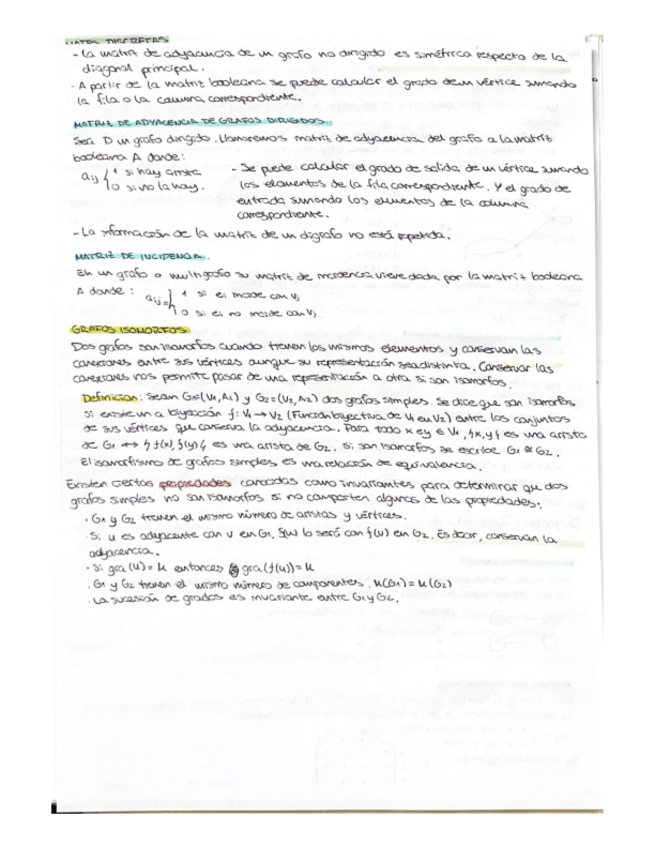 - La matriz de adyacencia de un grafo no dirigido es simétrica respecto de la
diagonal principal.
- A partir de la matriz booleana se puede calcular el grado de un vértice sumando
la fila o la columna correspondiente.
MATRIZ DE ADYACENCIA DE GRAFOS DIRIGIDOS.
Sea D un grafo dirigido. Llamaremos matriz de adyacencia del grafo a la matriz
booleana A donde:
aij { 1 si hay arista
0 si no la hay.
- Se puede calcular el grado de salida de un vértice sumando
los elementos de la fila correspondiente. Y el grado de
entrada sumando los elementos de la columna
correspondiente.
- La información de la matriz de un digrafo no está repetida.
MATRIZ DE INCIDENCIA.
En un grafo o multigrafo su matriz de incidencia viene dada por la matriz booleana
A donde: aij = { 1 si ei incide con vj
0 si ei no incide con vj
GRAFOS ISOMORFOS.
Dos grafos son isomorfos cuando tienen los mismos elementos y conservan las
conexiones entre sus vértices aunque su representación sea distinta. Conservar las
conexiones nos permite pasar de una representación a otra si son isomorfos.
Definición: Sean G1=(V1,A1) y G2=(V2,A2) dos grafos simples. Se dice que son isomorfos
si existe una biyección f: V1 → V2 (Función biyectiva de V1 en V2) entre los conjuntos
de sus vértices que conserva la adyacencia. Para todo x e y ∈ V1, {x,y} es una arista
de G1 ↔ {f(x), f(y)} es una arista de G2. Si son isomorfos se escribe G1 ≅ G2.
El isomorfismo de grafos simples es una relación de equivalencia.
Existen ciertas propiedades conocidas como invariantes para determinar que dos
grafos simples no son isomorfos si no comparten algunas de las propiedades:
· G1 y G2 tienen el mismo número de aristas y vértices.
· Si u es adyacente con v en G1, f(u) lo será con f(v) en G2. Es decir, conservan la
adyacencia.
· Si gra(u) = k entonces gra(f(u)) = k
· G1 y G2 tienen el mismo número de componentes. k(G1) = k(G2)
· La sucesión de grados es invariante entre G1 y G2.